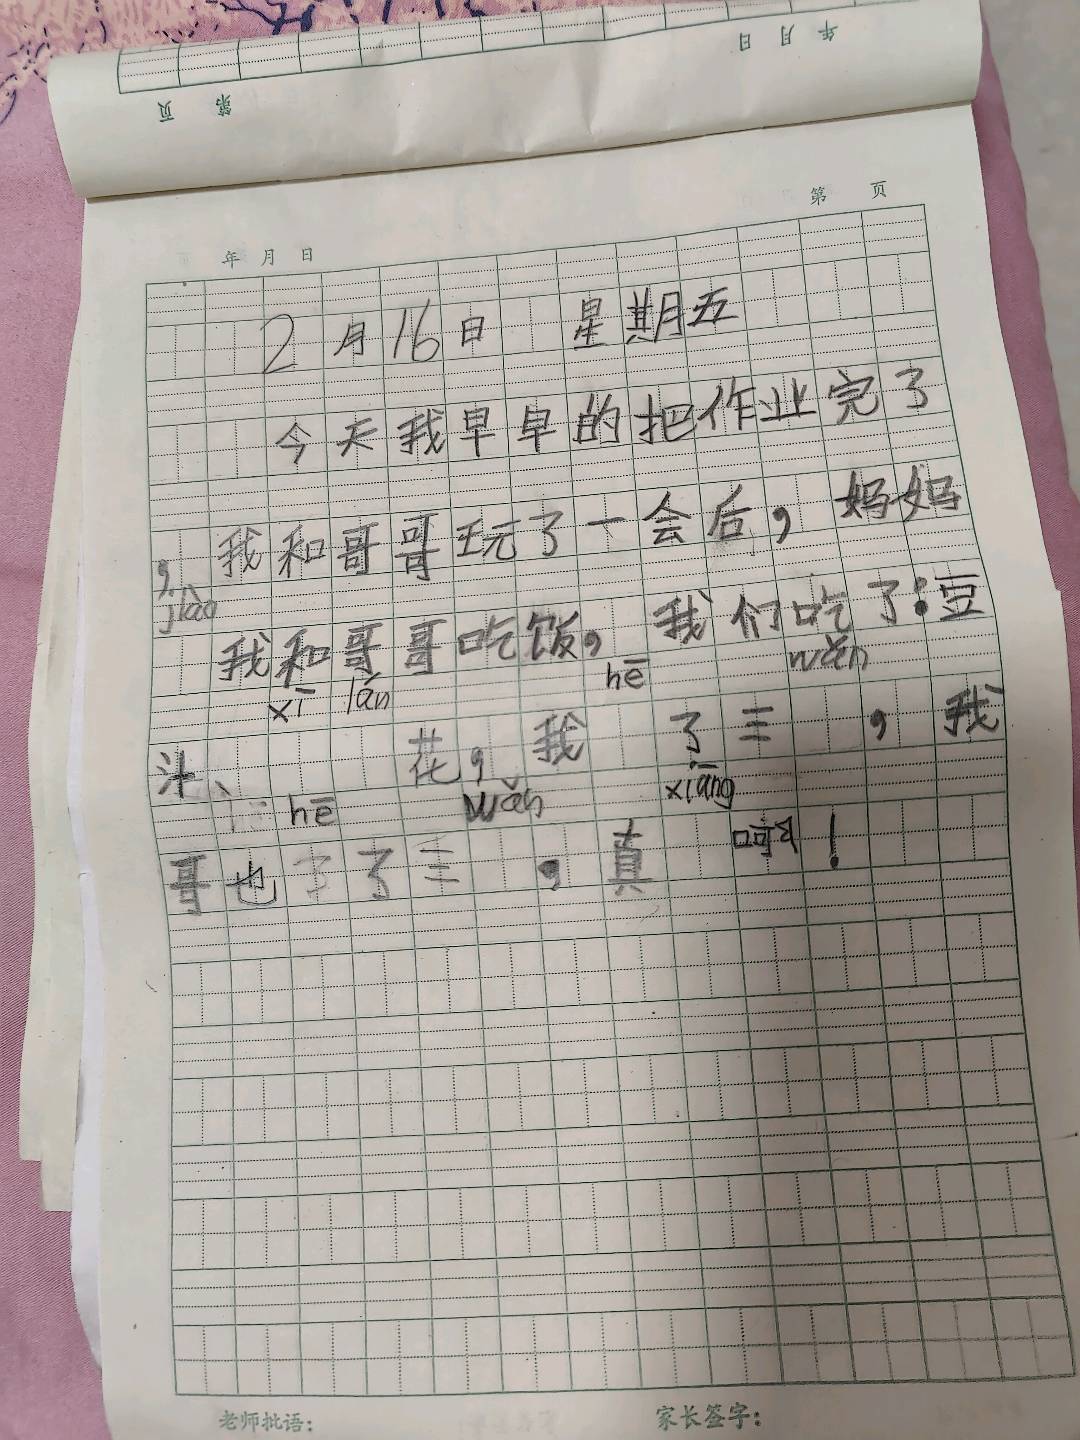 年 月 日
第 页
第 页
年 月 日
2月16日 星期五
今天我早早的把作业完了
,我和哥哥玩了一会后,妈妈
jiào
我和哥哥吃饭,我们吃了:豆
xī lán hē wǎn
汁、 花,我 了三 ,我
hē wǎn xiāng
哥也了了三 ,真 啊!
老师批语: 家长签字: